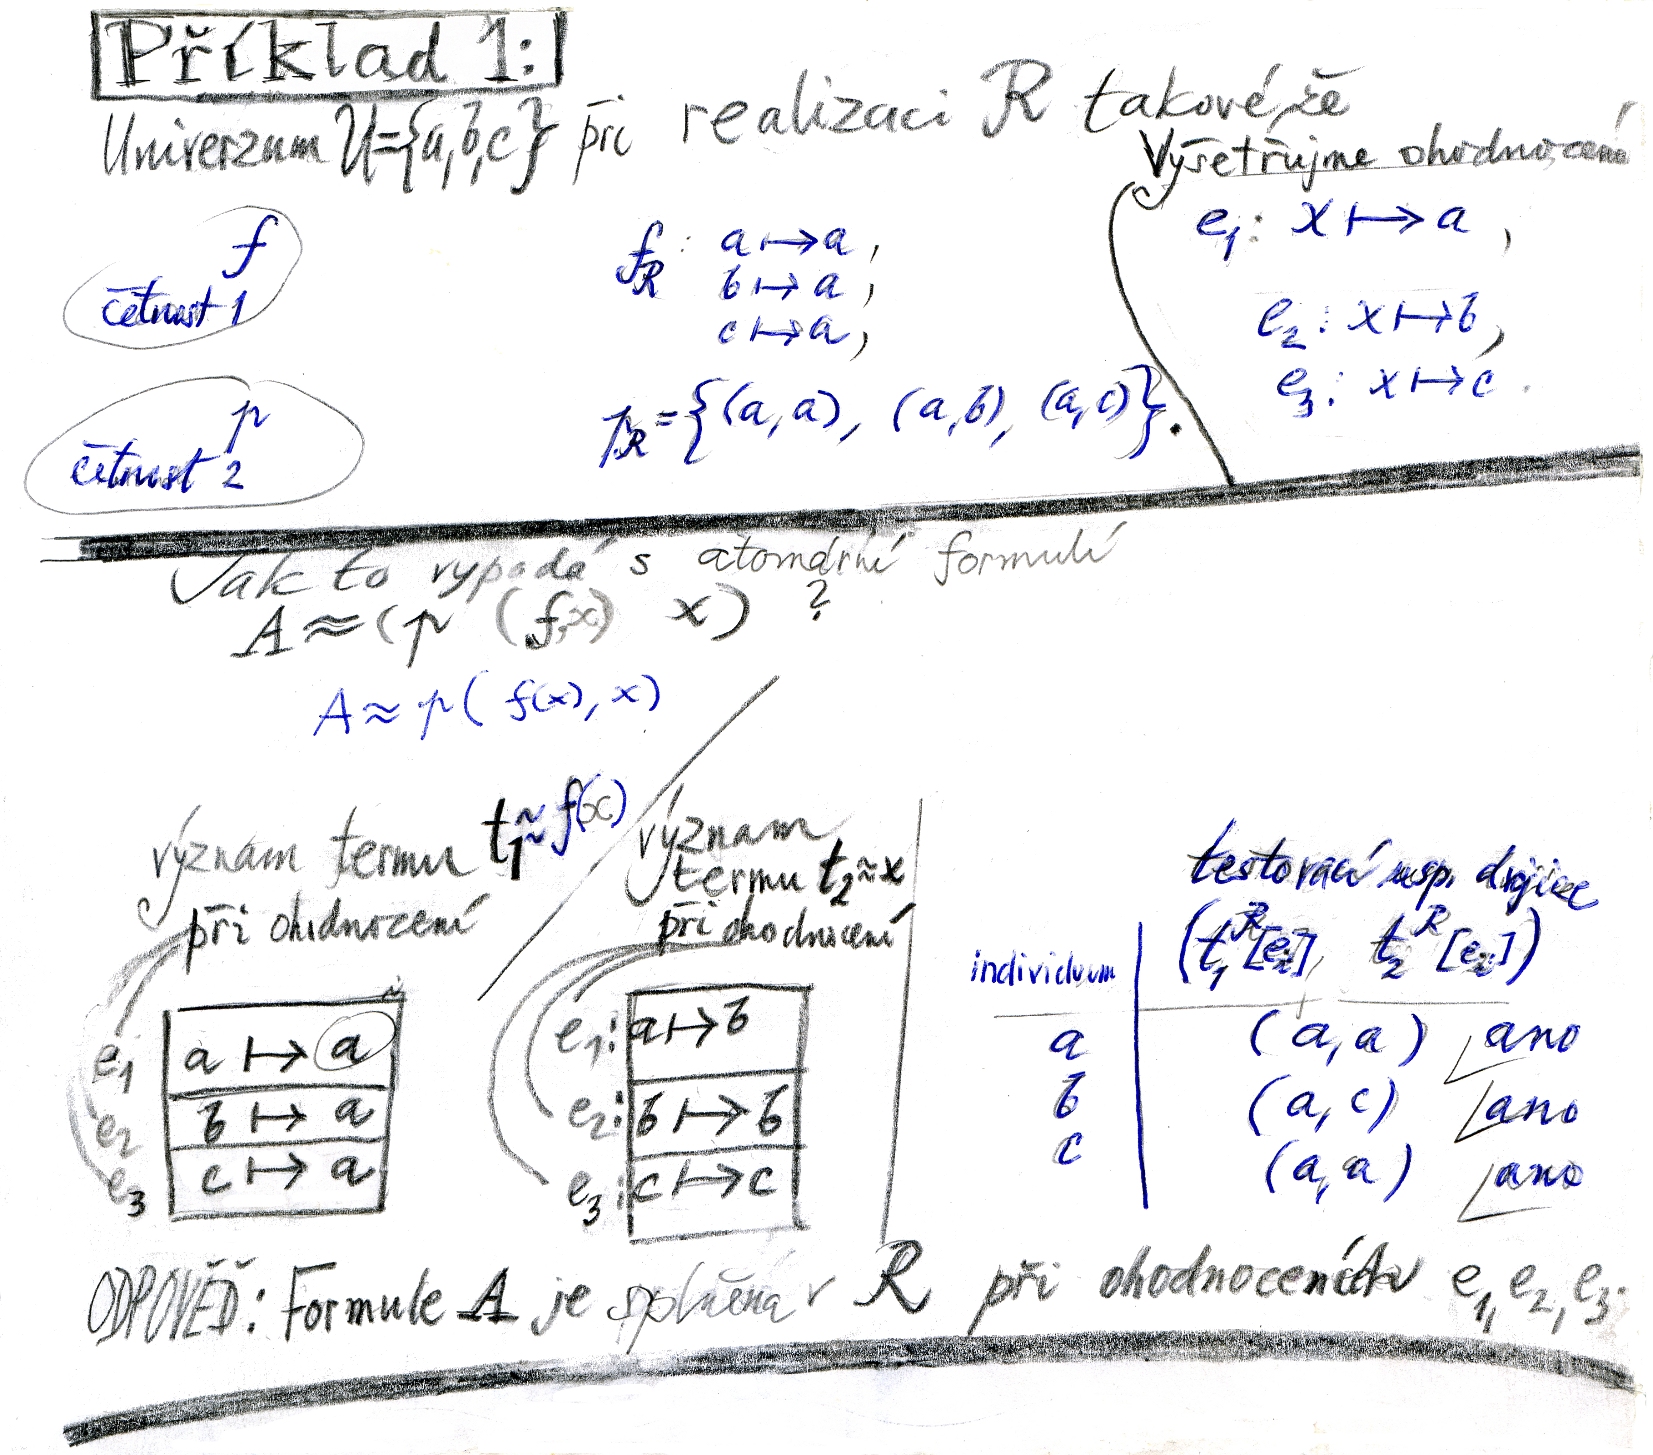 Příklad 1:
Univerzum U={a,b,c} při realizaci R takové,že
Vyšetřujme ohodnocení
f
četnost 1
f_R : a ↦ a,
b ↦ a,
c ↦ a,
e₁: x ↦ a,
e₂: x ↦ b,
e₃: x ↦ c.
p
četnost 2
p_R = {(a,a), (a,b), (a,c)}.
Jak to vypadá s atomární formulí
A ≈ (p (f,x) x) ?
A ≈ p( f(x), x)
význam termu t₁ ≈ f(x)
při ohodnocení
e₁ a ↦ a
e₂ b ↦ a
e₃ c ↦ a
význam
termu t₂ ≈ x
při ohodnocení
e₁: a ↦ b
e₂: b ↦ b
e₃: c ↦ c
testovací usp. dvojice
individuum (t₁^R[e_i], t₂^R[e_i])
a (a,a) ano
b (a,c) ano
c (a,a) ano
ODPOVĚĎ: Formule A je splněna v R při ohodnoceních e₁,e₂,e₃.